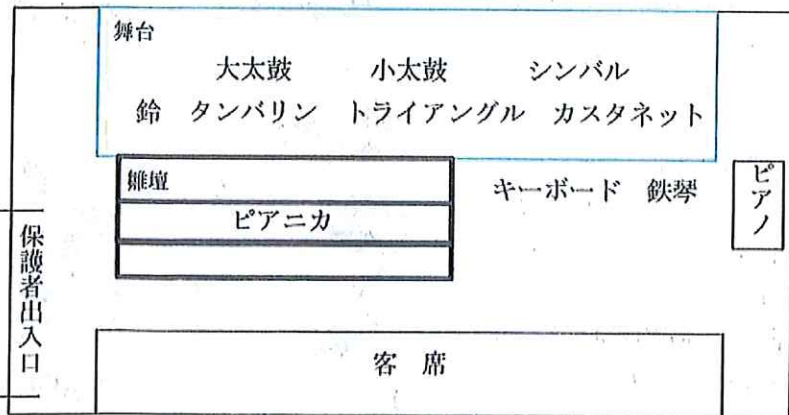 舞台
大太鼓 小太鼓 シンバル
鈴 タンバリン トライアングル カスタネット
雛壇
ピアニカ
キーボード 鉄琴
ピアノ
保護者出入口
客席